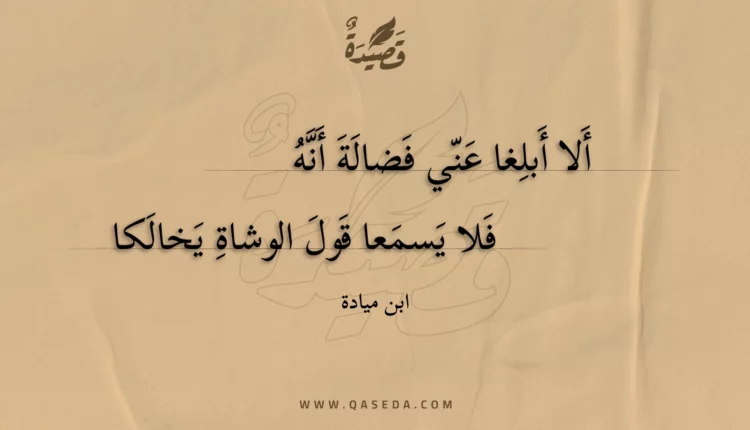 قَصِيْدَةٌ
أَلا أَبلِغا عَنّي فَضالَةَ أَنَّهُ
فَلا يَسمَعا قَولَ الوشاةِ يَخالَكا
ابن ميادة
WWW.QASEDA.COM